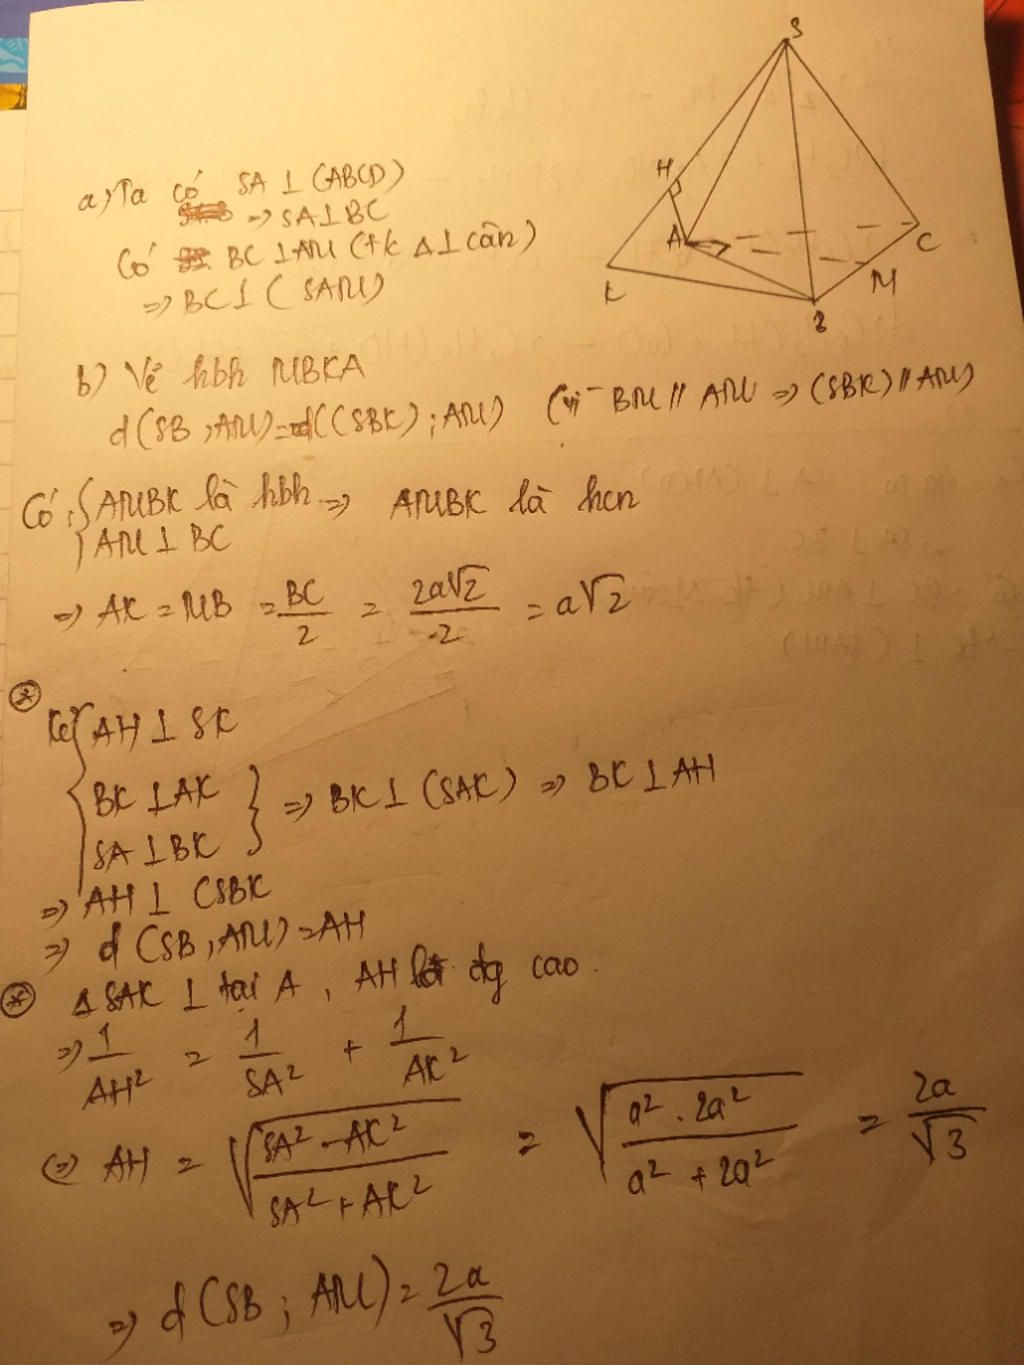 S
H
A
C
M
K
B
a) Ta có SA ⊥ (ABCD)
=> SA ⊥ BC
Có BC ⊥ AM (t/c Δ ⊥ cân)
=> BC ⊥ (SAM)
b) Vẽ hbh MBKA
d(SB, AM) = d((SBK); AM) (vì BM // AM => (SBK) // AM)
Có: { AMBK là hbh => AMBK là hcn
AM ⊥ BC
=> AK = MB = BC/2 = 2a√2/2 = a√2
* Kẻ { AH ⊥ SK
BK ⊥ AK } => BK ⊥ (SAK) => BK ⊥ AH
SA ⊥ BK
=> AH ⊥ (SBK
=> d(SB, AM) = AH
* Δ SAK ⊥ tại A, AH là đg cao.
=> 1/AH² = 1/SA² + 1/AK²
(=) AH = √(SA² - AK² / SA² + AK²) = √(a² . 2a² / a² + 2a²) = 2a/√3
=> d(SB; AM) = 2a/√3